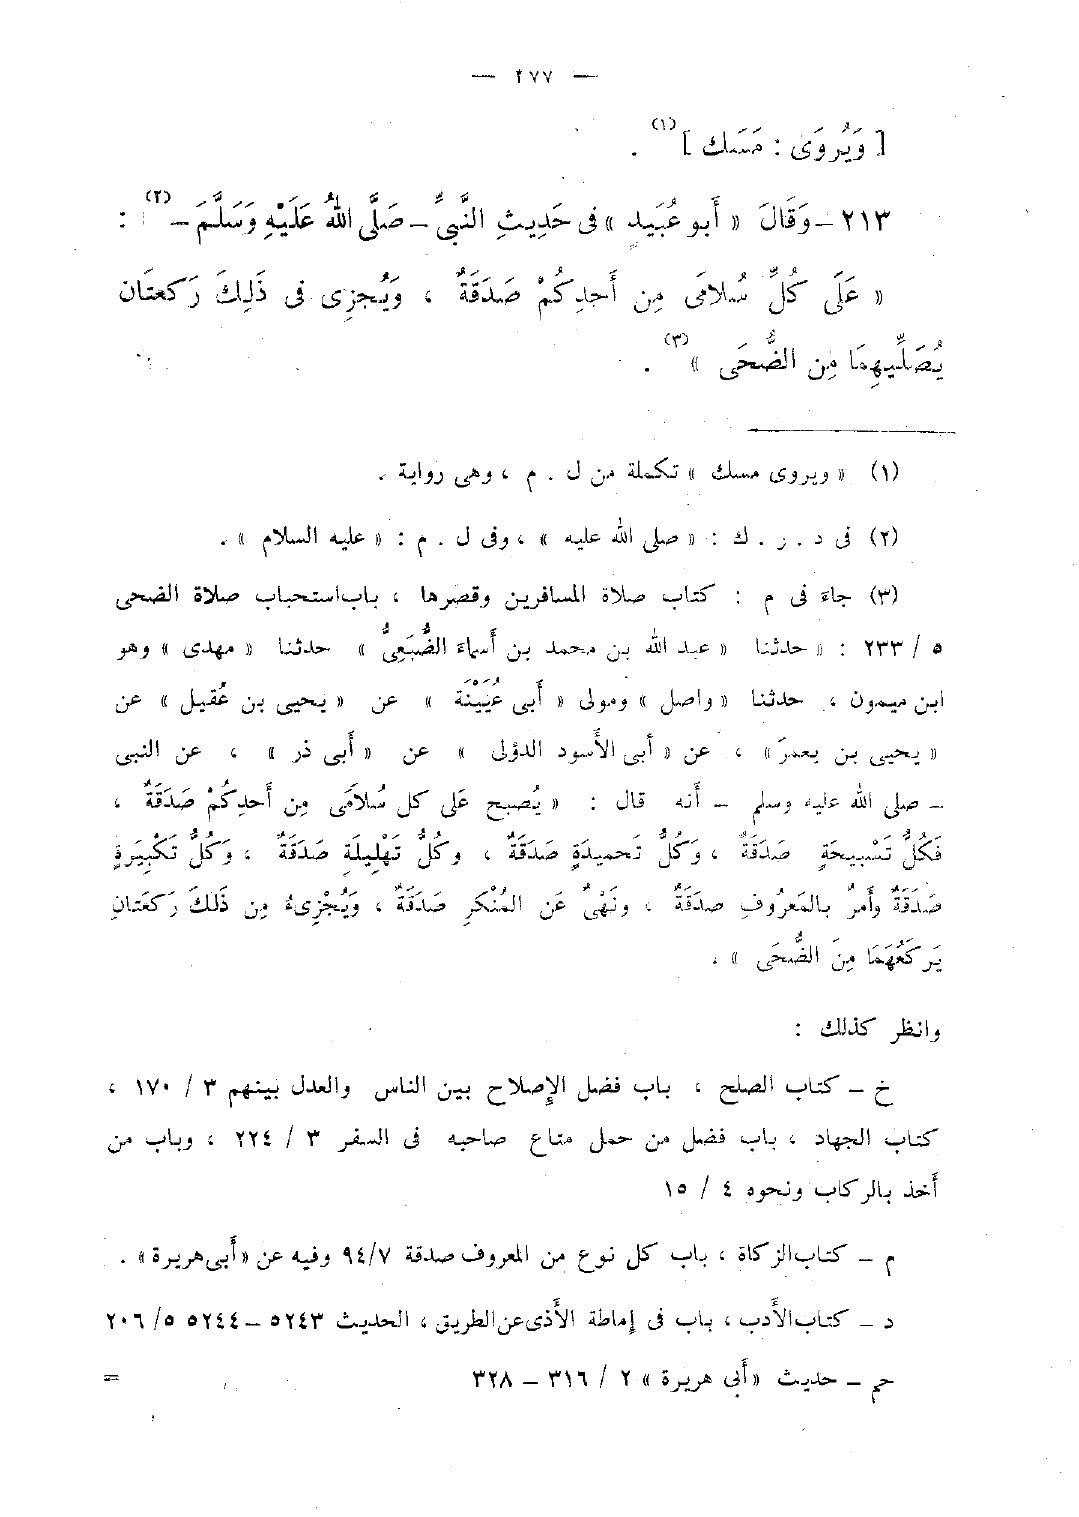 — ٢٧٧ —
[ وَيُروَى : مَسَك ] (١) .
٢١٣ – وَقَالَ « أَبو عُبَيد » فى حَدِيثِ النَّبىِّ – صَلَّى اللهُ عَلَيْهِ وَسَلَّمَ – (٢) :
« عَلَى كُلِّ سُلامَى مِن أَحدِكُمْ صَدَقَةٌ ، وَيُجزِى فى ذَلِكَ رَكعتَان
يُصَلِّيهِمَا مِن الضُّحَى » (٣) .
(١) « ويروى مسك » تكملة من ل . م ، وهى رواية .
(٢) فى د . ر . ك : « صلى الله عليه » ، وفى ل . م : « عليه السلام » .
(٣) جاءَ فى م : كتاب صلاة المسافرين وقصرها ، باب استحباب صلاة الضحى
٥ / ٢٣٣ : « حدثنا « عبد الله بن محمد بن أسماءَ الضُّبَعِىُّ » حدثنا « مهدى » وهو
ابن ميمون ، حدثنا « واصل » ومولى « أَبى عُيَيْنَة » عن « يحيى بن عُقيل » عن
« يحيى بن يعمرَ » ، عن « أَبى الأَسود الدؤلى » عن « أَبى ذر » ، عن النبى
– صلى الله عليه وسلم – أَنه قال : « يُصبح عَلَى كل سُلامَى مِن أَحدِكُمْ صَدَقَةٌ ،
فَكُلُّ تَسْبيحَةٍ صَدَقَةٌ ، وَكُلُّ تَحميدَةٍ صَدَقَةٌ ، وكُلُّ تَهْلِيلَةٍ صَدَقَةٌ ، وَكُلُّ تَكْبِيَرةٍ
صَدَقَةٌ وأَمرٌ بالمَعرُوفِ صدَقَةٌ ، ونَهْىٌ عَن المُنْكَرِ صَدَقَةٌ ، وَيُجْزِىءُ مِن ذَلكَ رَكعتَانِ
يَركَعُهُمَا مِنَ الضُّحَى » .
وانظر كذلك :
خ – كتاب الصلح ، باب فضل الإِصلاح بين الناس والعدل بينهم ٣ / ١٧٠ ،
كتاب الجهاد ، باب فضل من حمل متاع صاحبه فى السفر ٣ / ٢٢٤ ، وباب من
أَخذ بالركاب ونحوه ٤ / ١٥
م – كتاب الزكاة ، باب كل نوع من المعروف صدقة ٩٤/٧ وفيه عن «أَبى هريرة» .
د – كتاب الأَدب ، باب فى إماطة الأَذى عن الطريق ، الحديث ٥٢٤٣ – ٥٢٤٤ ٥/ ٢٠٦
حم – حديث «أَبى هريرة » ٢ / ٣١٦ – ٣٢٨
=